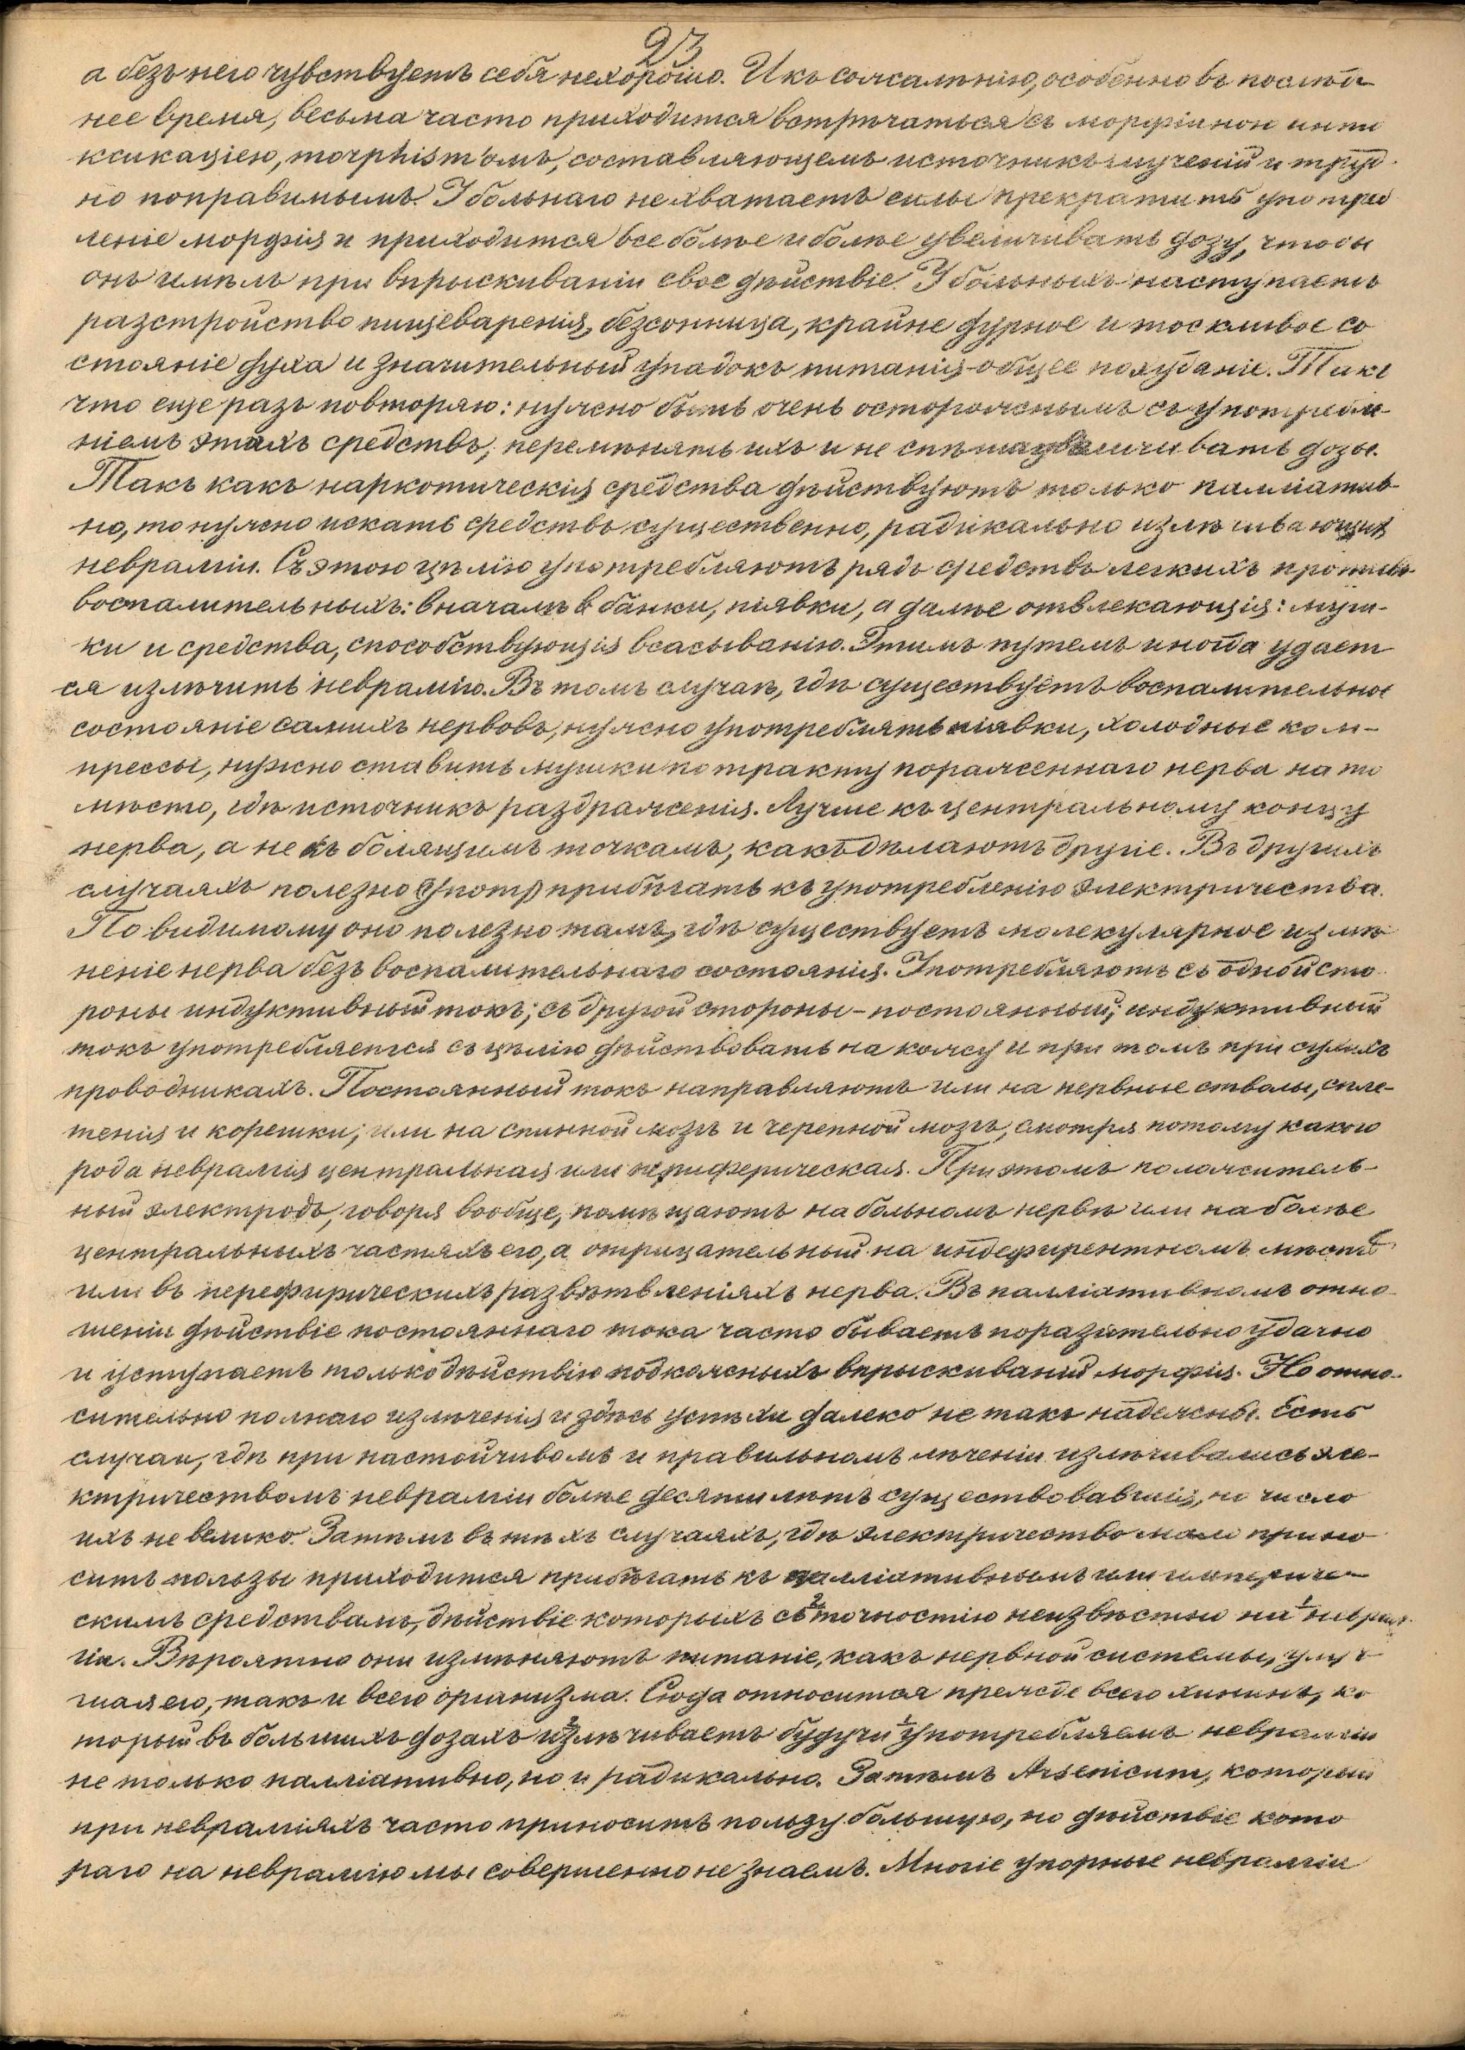 23
а безъ него чувствуетъ себя нехорошо. И къ сожалѣнію, особенно въ послѣд
нее время, весьма часто приходится встрѣчаться съ морфійною инто
ксикаціею, morphismъомъ, составляющемъ источникъ мученій и труд-
но поправимымъ. У больнаго не хватаетъ силы прекратить употреб
леніе морфія и приходится все болѣе и болѣе увеличивать дозу, чтобы
онъ имѣлъ при впрыскиваніи свое дѣйствіе. У больныхъ наступаетъ
разстройство пищеваренія, безсонница, крайне дурное и тоскливое со
стояніе духа и значительный упадокъ питанія - общее похуданіе. Такъ
что еще разъ повторяю: нужно быть очень осторожнымъ съ употребле-
ніемъ этихъ средствъ, перемѣнять ихъ и не спѣша увеличивать дозы.
Такъ какъ наркотическія средства дѣйствуютъ только палліатив-
но, то нужно искать средствъ существенно, радикально излѣчивающихъ
невралгіи. Съ этою цѣлію употребляютъ рядъ средствъ легкихъ противо
воспалительныхъ: вначалѣ банки, піявки, а далѣе отвлекающія: муш-
ки и средства, способствующія всасыванію. Этимъ путемъ иногда удает
ся излѣчить невралгію. Въ томъ случаѣ, гдѣ существуетъ воспалительное
состояніе самихъ нервовъ, нужно употреблять піявки, холодные ком-
прессы, нужно ставить мушки по тракту пораженнаго нерва на то
мѣсто, гдѣ источникъ раздраженія. Лучше къ центральному концу
нерва, а не къ болящимъ точкамъ, какъ дѣлаютъ другіе. Въ другихъ
случаяхъ полезно (употр) прибѣгать къ употребленію электричества.
По видимому оно полезно тамъ, гдѣ существуетъ молекулярное измѣ
неніе нерва безъ воспалительнаго состоянія. Употребляютъ съ одной сто
роны индуктивный токъ; съ другой стороны - постоянный; индуктивный
токъ употребляется съ цѣлію дѣйствовать на кожу и при томъ при сухихъ
проводникахъ. Постоянный токъ направляютъ или на нервные стволы, спле-
тенія и корешки; или на спинной мозгъ и черепной мозгъ, смотря потому какого
рода невралгія центральная или периферическая. При этомъ положитель-
ный электродъ, говоря вообще, помѣщаютъ на больномъ нервѣ или на болѣе
центральныхъ частяхъ его, а отрицательный на индеферентномъ мѣстѣ
или въ переферическихъ развѣтвленіяхъ нерва. Въ палліативномъ отно-
шеніи дѣйствіе постояннаго тока часто бываетъ поразительно удачно
и уступаетъ только дѣйствію подкожныхъ впрыскиваній морфія. Но отно-
сительно полнаго излѣченія и здѣсь успѣхи далеко не такъ надежны. Есть
случаи, гдѣ при настойчивомъ и правильномъ лѣченіи излѣчивались эле-
ктричествомъ невралгіи болѣе десяти лѣтъ существовавшія, но число
ихъ не велико. Затѣмъ въ тѣхъ случаяхъ, гдѣ электричество мало прино
ситъ пользы приходится прибѣгать къ палліативнымъ или импириче-
скимъ средствамъ, дѣйствіе которыхъ съ точностію неизвѣстно на неврал-
гіи. Вѣроятно они измѣняютъ питаніе, какъ нервной системы, улуч
шая его, такъ и всего организма. Сюда относится прежде всего хининъ, ко
торый въ большихъ дозахъ излѣчиваетъ будучи употребляемъ невралгіи
не только палліативно, но и радикально. Затѣмъ Arsenicum, который
при невралгіяхъ часто приноситъ пользу большую, но дѣйствіе кото
раго на невралгію мы совершенно не знаемъ. Многіе упорные невралгіи